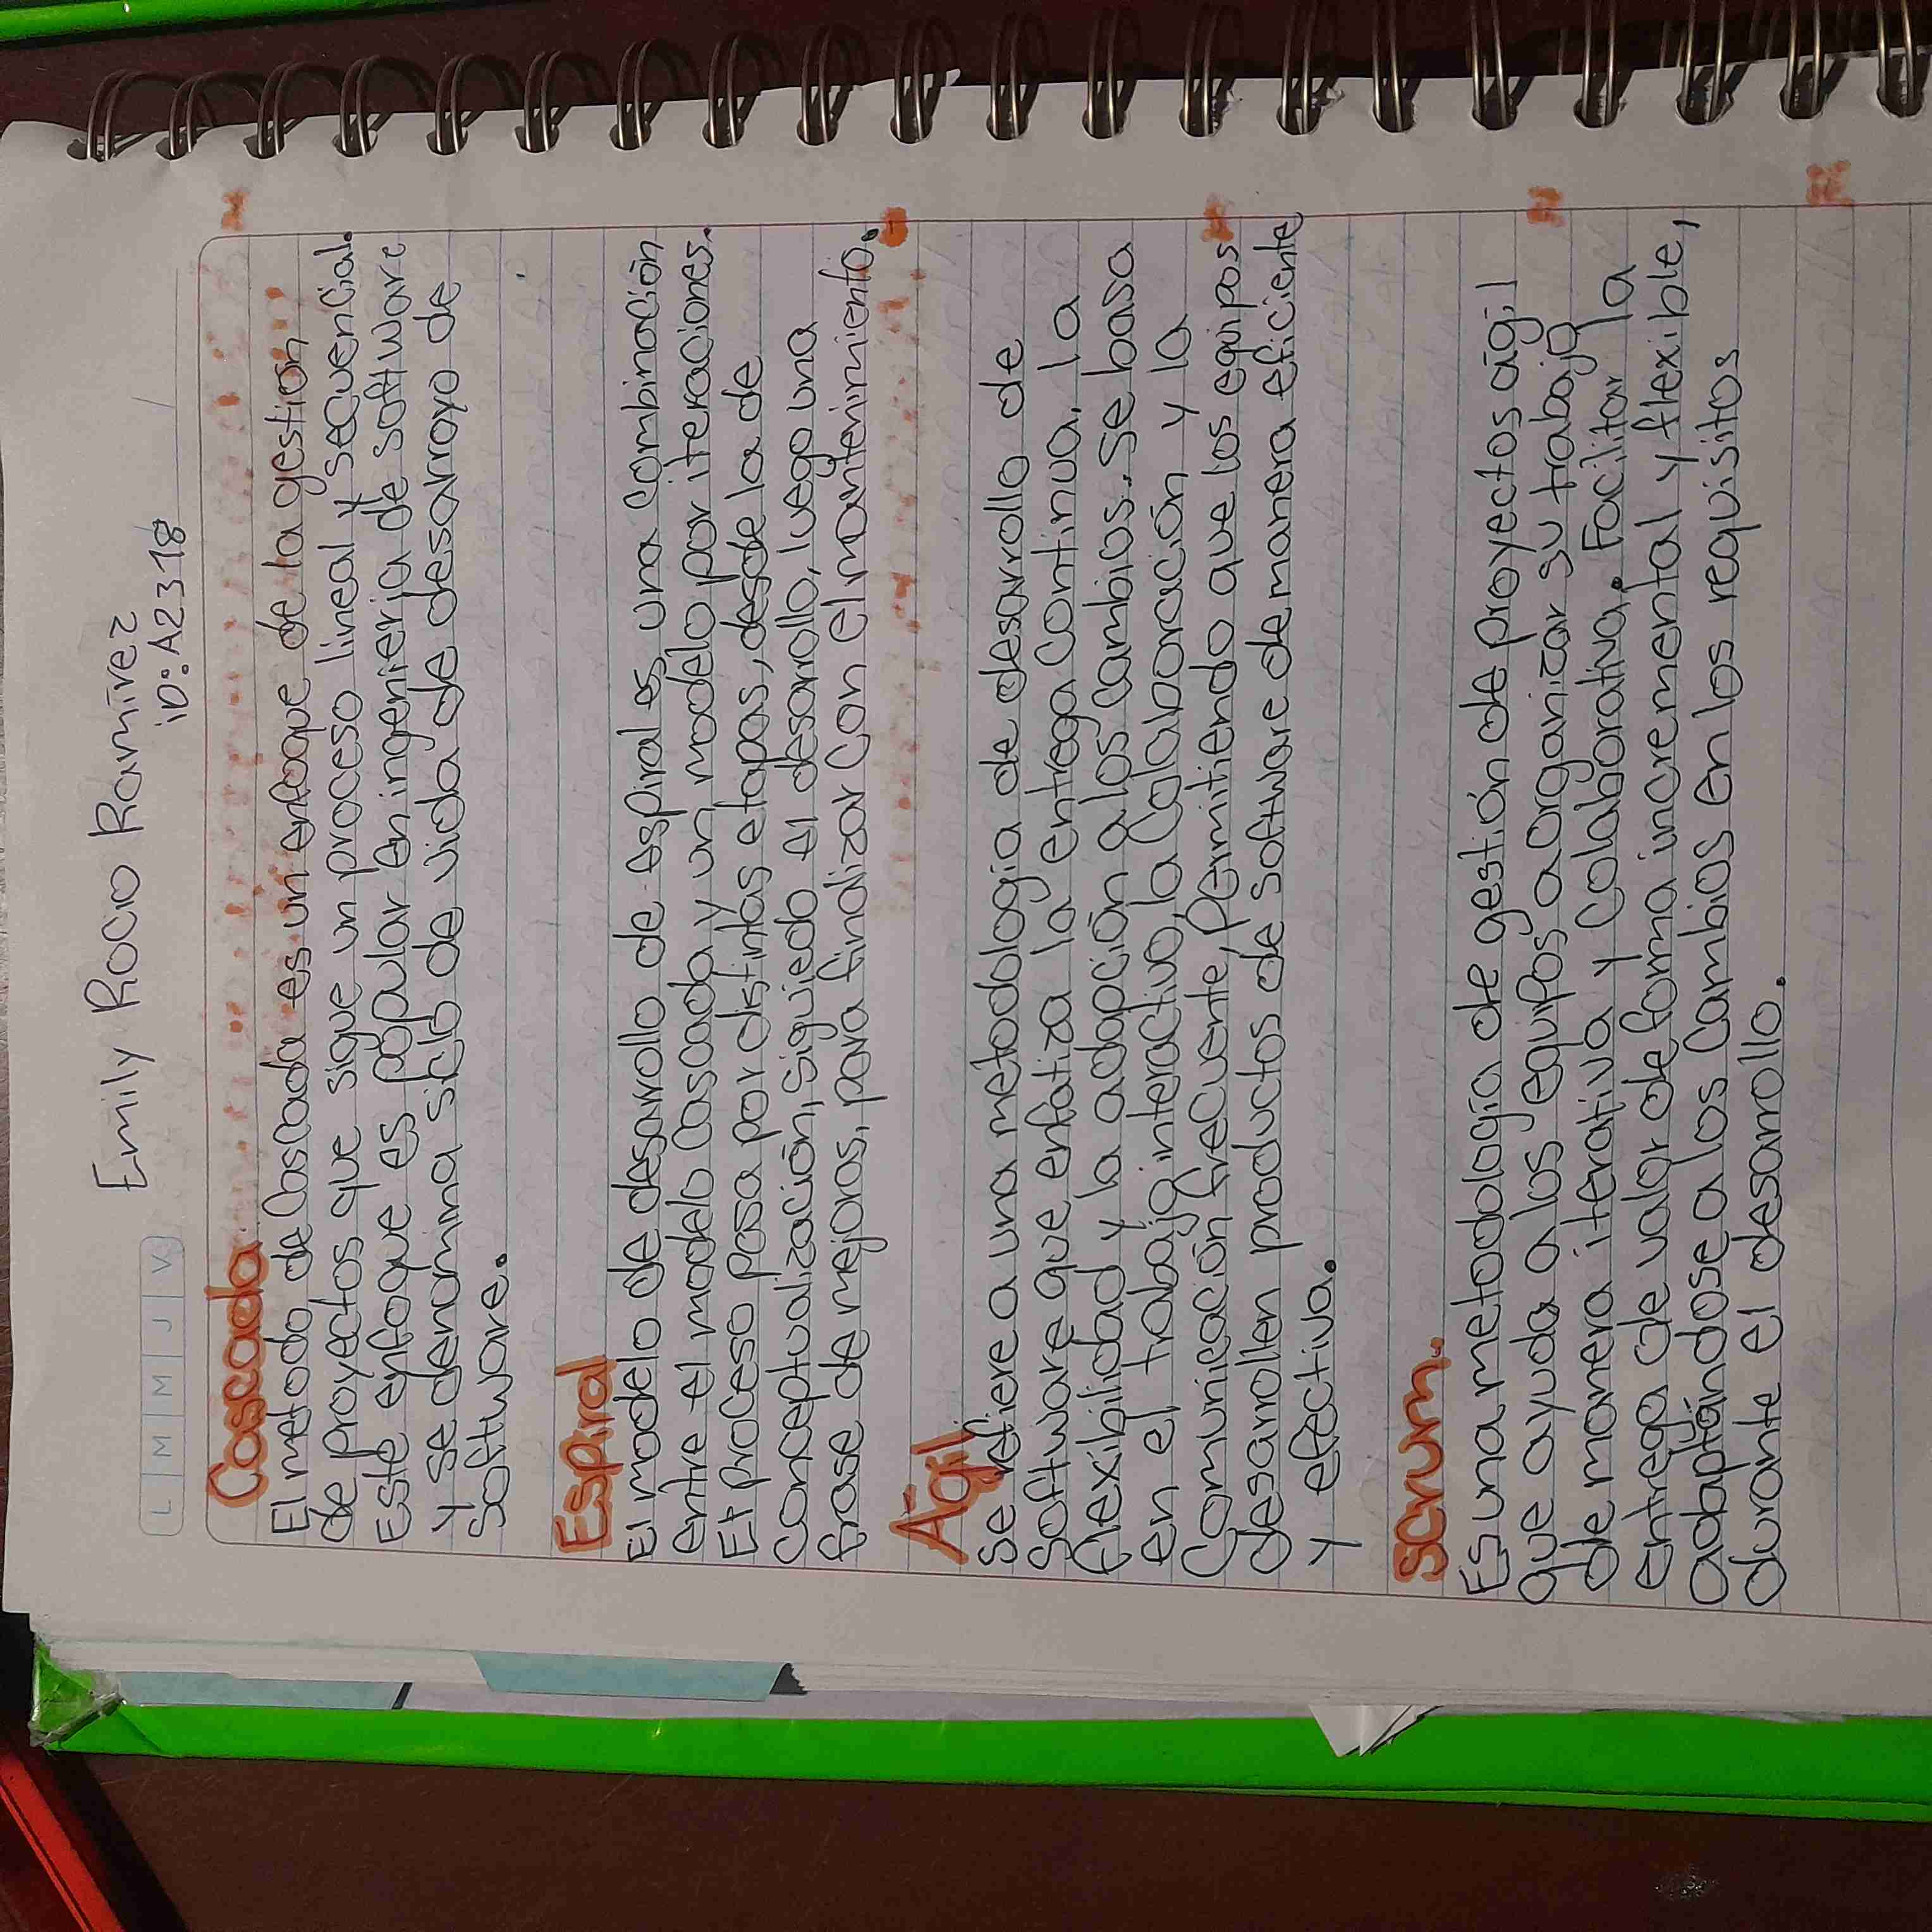 Emily Rocio Ramírez
iD: A2318
L M M J V
Cascada
El metodo de Cascada es un enfoque de la gestion
de proyectos que sique un proceso lineal y sequencial.
Este enfoque es popular en ingenieria de software
y se denomina siclo de vida de desarroyo de
Software.
Espiral
El modelo de desarrollo de espiral es una combinación
entre el modelo cascada y un modelo por iteraciones.
El proceso pasa por distintas etapas, desde la de
conceptualización, siguiedo el desarrollo, luego una
frase de mejoras, para finalizar con el mantenimiento.
Ágil
Se refiere a una metodologia de desarrollo de
Software que enfatiza la entrega continua, la
flexibilidad y la adapción a los cambios. Se basa
en el trabajo interactivo, la Colaboración y la
Comunicación frecuente, Permitiendo que los equipos
desarrollen productos de software de manera eficiente
y efectiva.
scrum.
Es una metodología de gestión de proyectos ágil
que ayuda a los equipos a organizar su trabajo
de manera iterativa y colaborativa. Facilitar la
entrega de valor de forma incremental y flexible,
adaptándose a los cambios en los requisitos
durante el desarrollo.